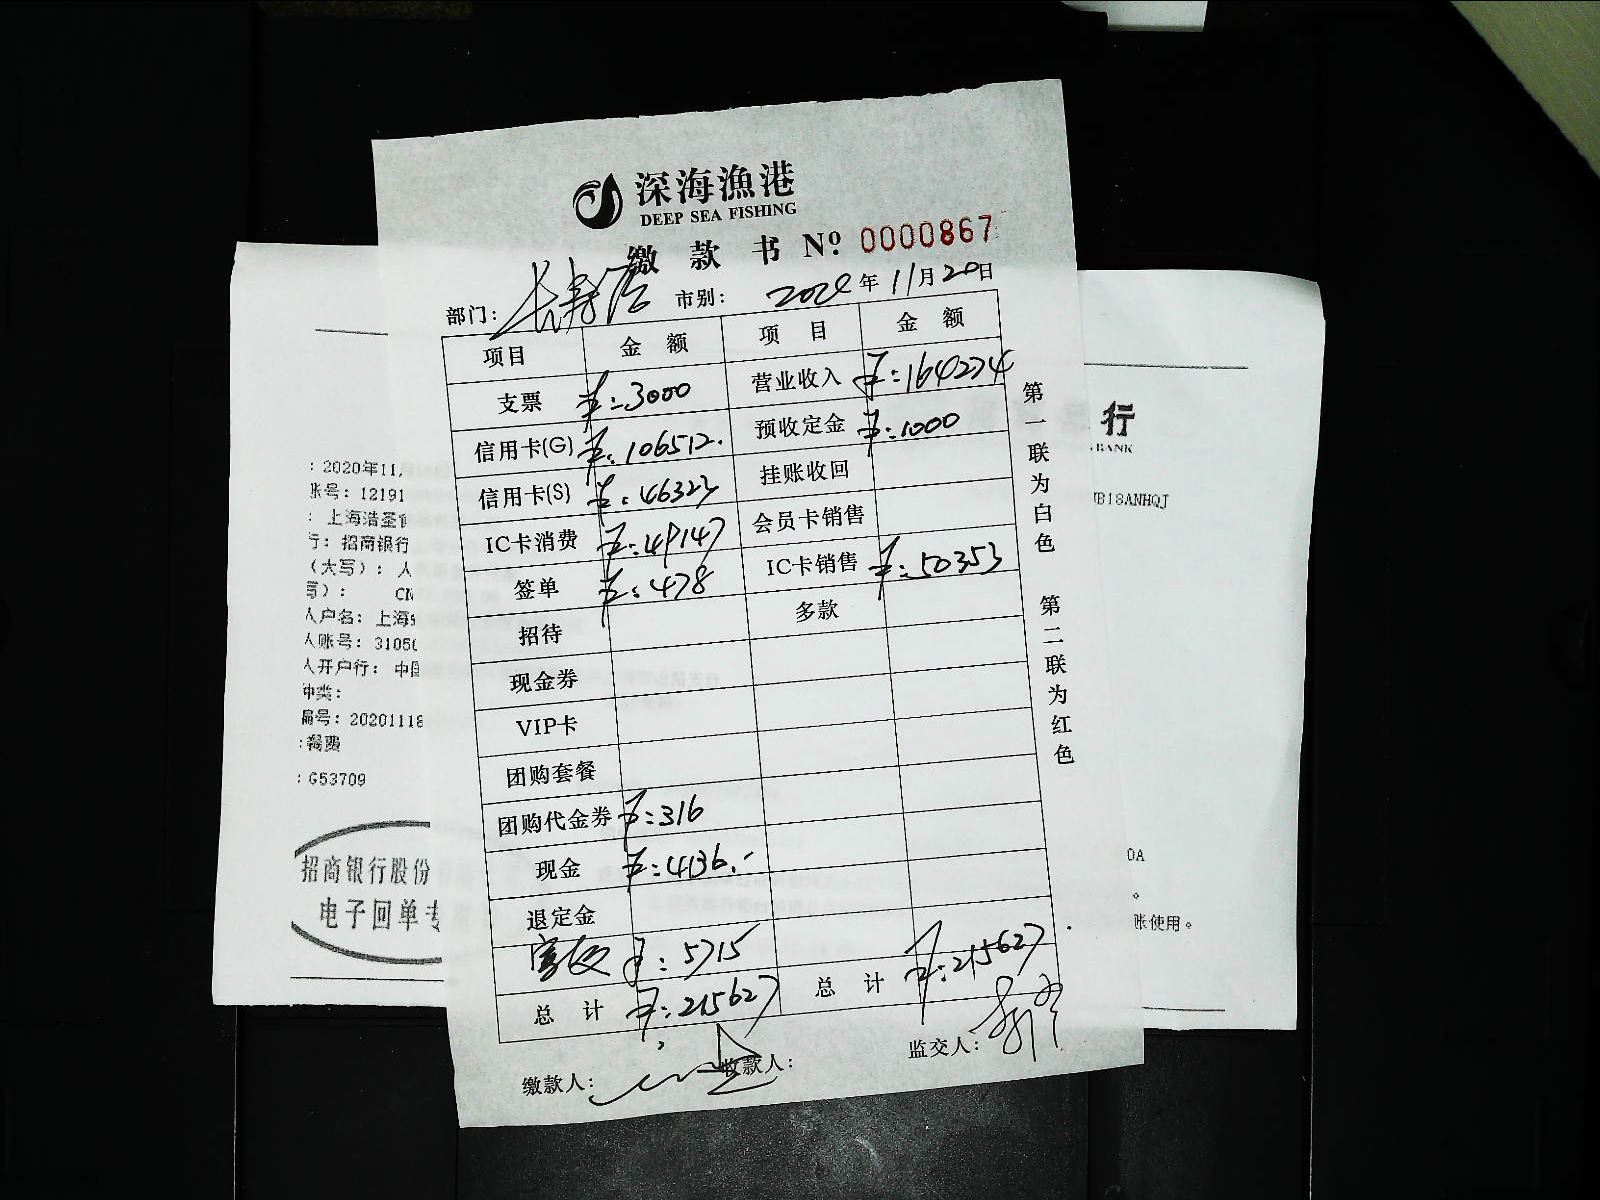 深海漁港
DEEP SEA FISHING
缴款书 Nº 0000867
部门: 长寿店 市别: 2020年11月20日
项目 金额 项目 金额
支票 ¥:3000 营业收入 ¥:164274
信用卡(G) ¥:106512. 预收定金 ¥:1000
信用卡(S) ¥:46323 挂账收回
IC卡消费 ¥:49147 会员卡销售
签单 ¥:478 IC卡销售 ¥:50353
招待 多款
现金券
VIP卡
团购套餐
团购代金券 ¥:316
现金 ¥:4136.-
退定金
富友 ¥:5715
总计 ¥:215627 总计 ¥:215627
缴款人: 收款人: 监交人:
第一联为白色 第二联为红色
: 2020年11
账号: 12191
: 上海浩圣
行: 招商银行
(大写): 人
写): CN
人户名: 上海
人账号: 3105
人开户行: 中国
种类:
编号: 20201118
G53709
招商银行股份
电子回单专
行
BANK
B18ANHQJ
0A
账使用。